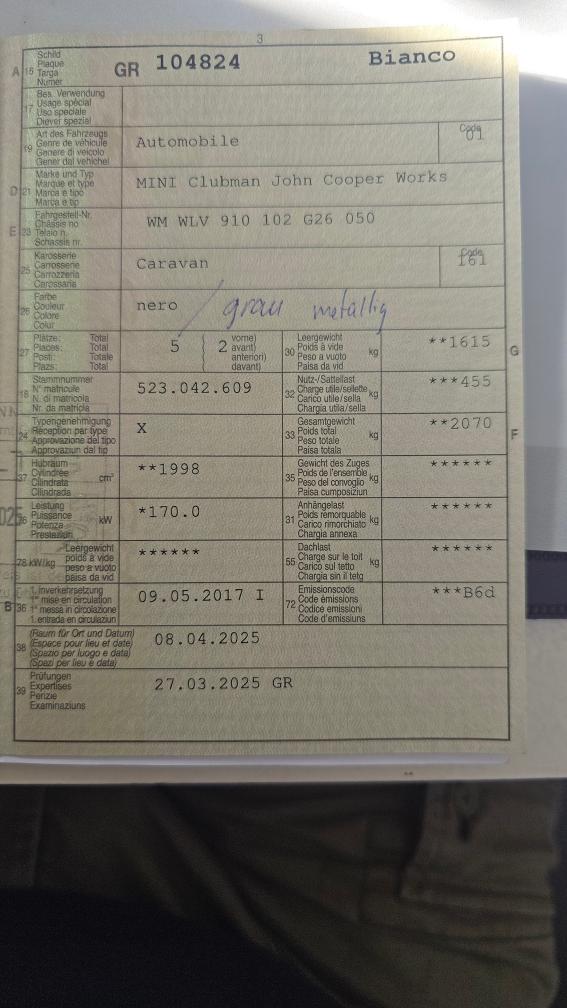 3
A 15 Schild Plaque Targa Numer GR 104824 Bianco
17 Bes. Verwendung Usage spécial Uso speciale Diever spezial
19 Art des Fahrzeugs Genre de véhicule Genere di veicolo Gener dal vehichel Automobile Code 01
D 21 Marke und Typ Marque et type Marca e tipo Marca e tip MINI Clubman John Cooper Works
E 23 Fahrgestell-Nr. Châssis no Telaio n. Schassis nr. WM WLV 910 102 G26 050
25 Karosserie Carrosserie Carrozzeria Carossaria Caravan Code f61
26 Farbe Couleur Colore Colur nero / grau metallig
27 Plätze: Places: Posti: Plazs: Total Total Totale Total 5 2 vorne) avant) anteriori) davant) 30 Leergewicht Poids à vide Peso a vuoto Paisa da vid kg **1615 G
18 Stammnummer N° matricule N. di matricola Nr. da matricla 523.042.609 32 Nutz-/Sattellast Charge utile/sellette Carico utile/sella Chargia utila/sella kg ***455
24 Typengenehmigung Réception par type Approvazione del tipo Approvaziun dal tip X 33 Gesamtgewicht Poids total Peso totale Paisa totala kg **2070 F
37 Hubraum Cylindrée Cilindrata Cilindrada cm³ **1998 35 Gewicht des Zuges Poids de l'ensemble Peso del convoglio Paisa cumposiziun kg ******
76 Leistung Puissance Potenza Prestaziun kW *170.0 31 Anhängelast Poids remorquable Carico rimorchiato Chargia annexa kg ******
78 kW/kg Leergewicht poids à vide peso a vuoto paisa da vid ****** 55 Dachlast Charge sur le toit Carico sul tetto Chargia sin il tetg kg ******
B 36 1. Inverkehrsetzung 1re mise en circulation 1a messa in circolazione 1. entrada en circulaziun 09.05.2017 I 72 Emissionscode Code émissions Codice emissioni Code d'emissiuns ***B6d
38 (Raum für Ort und Datum) (Espace pour lieu et date) (Spazio per luogo e data) (Spazi per lieu e data) 08.04.2025
39 Prüfungen Expertises Perizie Examinaziuns 27.03.2025 GR